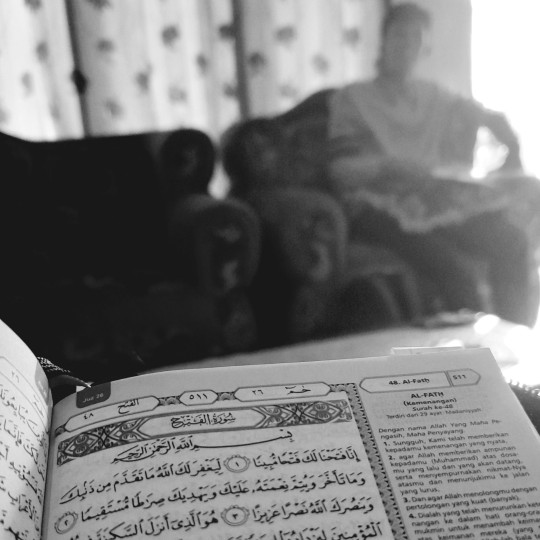 Juz 26
٤٨
الفتح
٥١١
٢٦
حم
48. Al-Fath
511
سورة الفتح
بِسْمِ اللَّهِ الرَّحْمَٰنِ الرَّحِيمِ
إِنَّا فَتَحْنَا لَكَ فَتْحًا مُبِينًا ١ لِيَغْفِرَ لَكَ اللَّهُ مَا تَقَدَّمَ مِنْ ذَنْبِكَ
وَمَا تَأَخَّرَ وَيُتِمَّ نِعْمَتَهُ عَلَيْكَ وَيَهْدِيَكَ صِرَاطًا مُسْتَقِيمًا ٢
وَيَنْصُرَكَ اللَّهُ نَصْرًا عَزِيزًا ٣ هُوَ الَّذِي أَنْزَلَ السَّكِينَةَ
AL-FATH
(Kemenangan)
Surah ke-48
Terdiri dari 29 ayat. Madaniyyah
Dengan nama Allah Yang Maha Pe-
ngasih, Maha Penyayang.
1. Sungguh, Kami telah memberikan
kepadamu kemenangan yang nyata.
2. agar Allah memberikan ampunan
kepadamu (Muhammad) atas dosa-
mu yang lalu dan yang akan datang,
serta menyempurnakan nikmat-Nya
atasmu dan menunjukimu ke jalan
yang lurus.
3. dan agar Allah menolongmu dengan
pertolongan yang kuat (banyak).
4. Dialah yang telah menurunkan kete-
nangan ke dalam hati orang-orang
mukmin untuk menambah